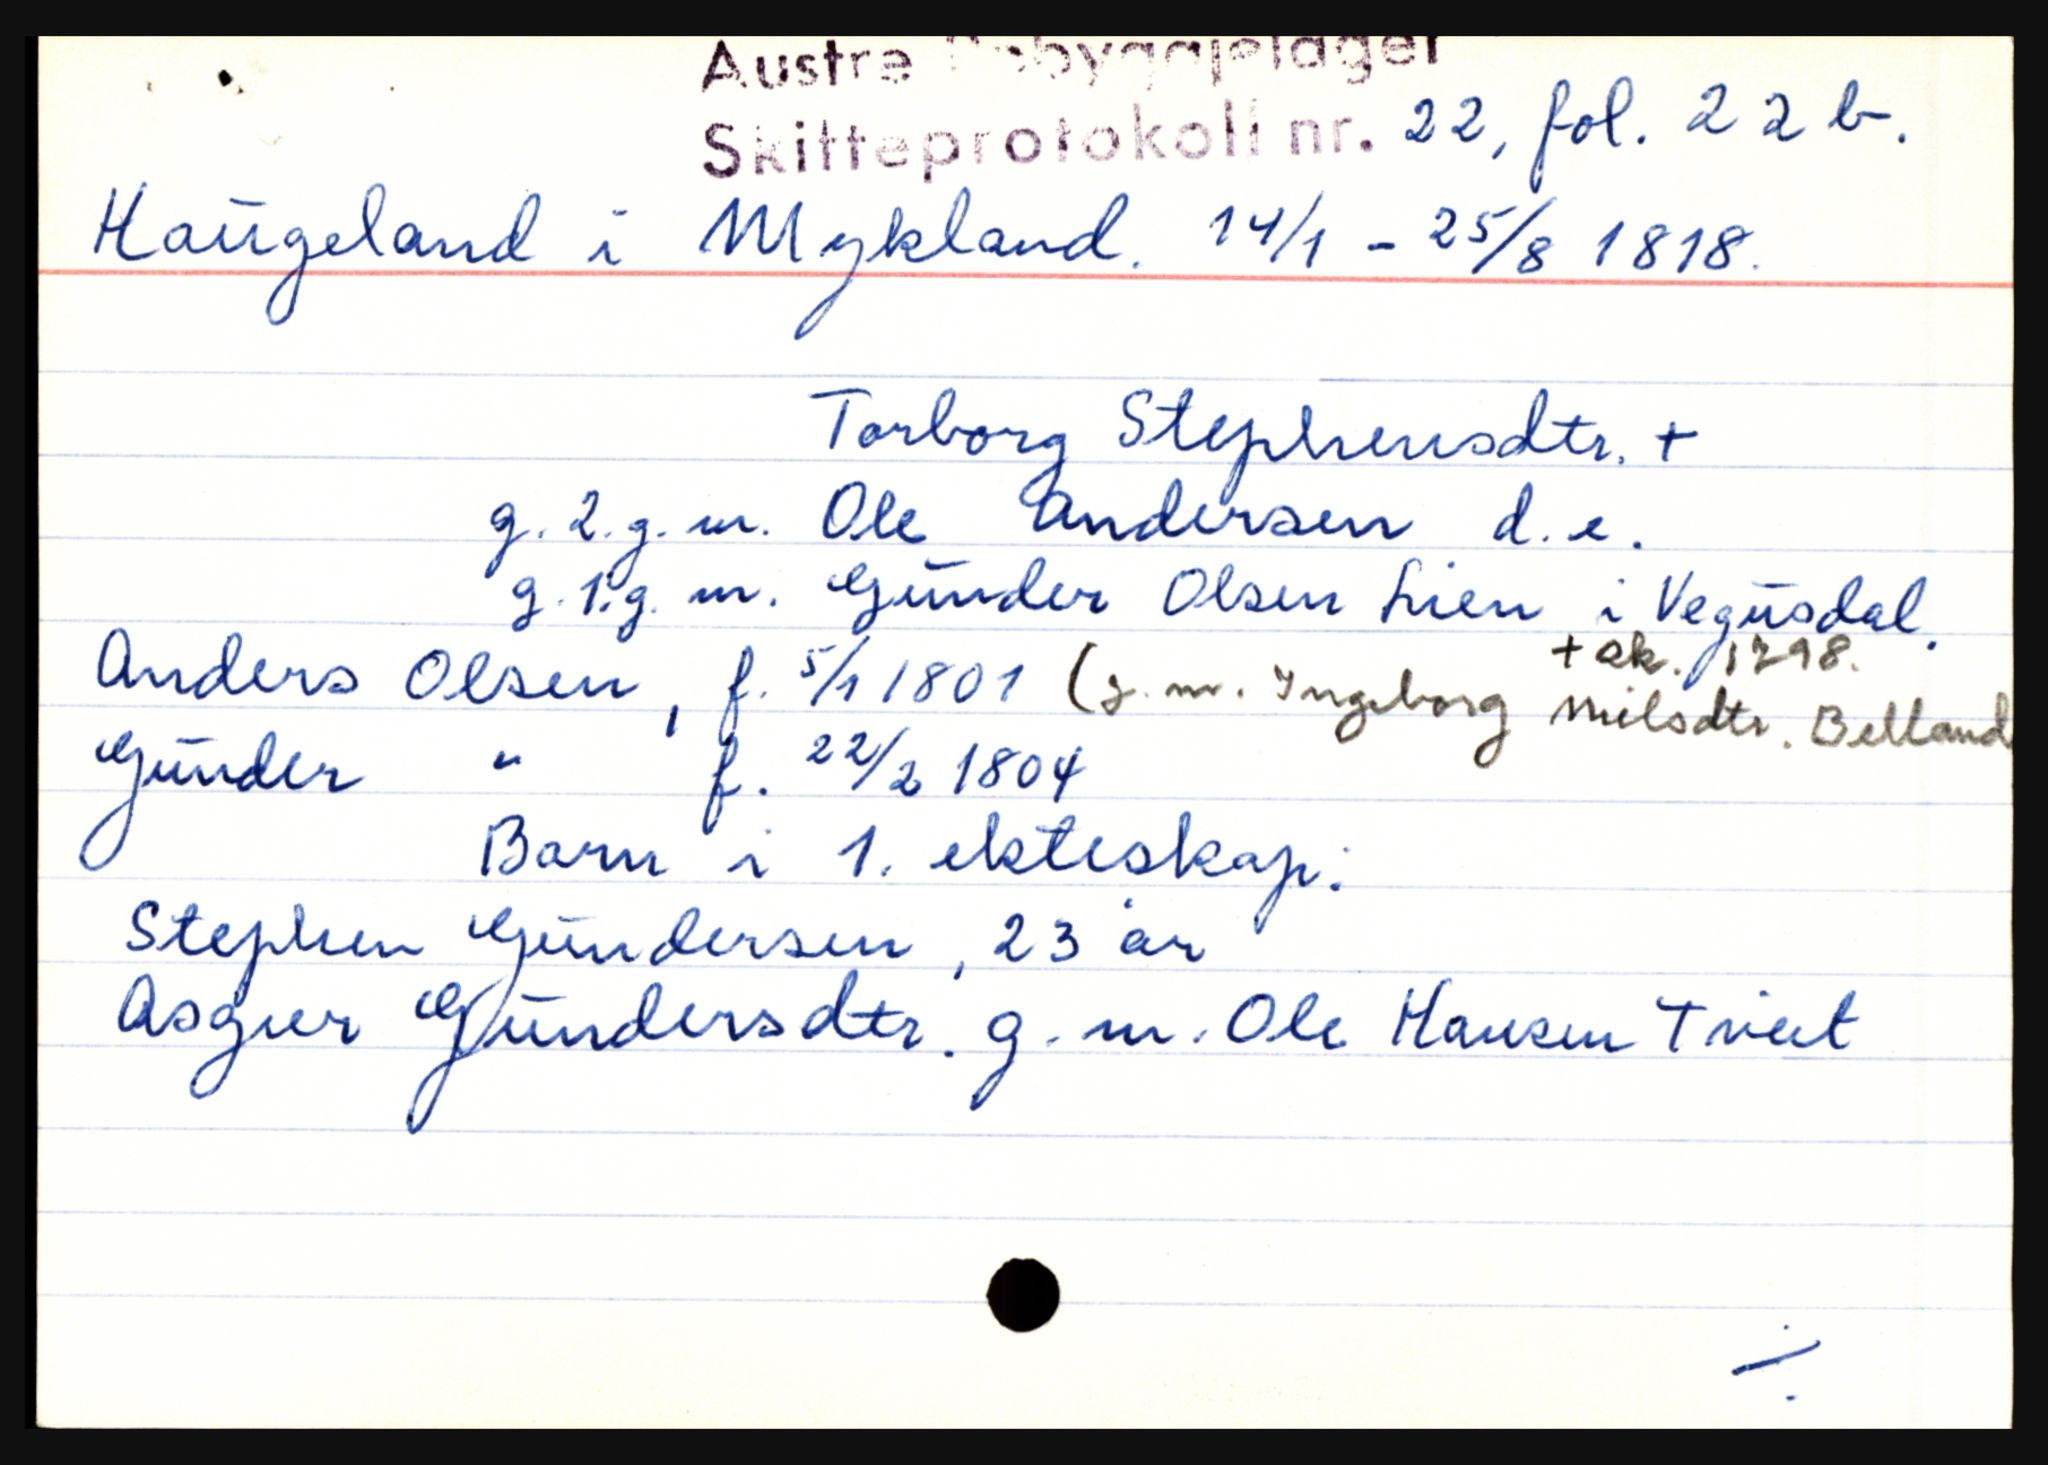 Austre Råbyggjelager
Skifteprotokoll nr. 22, fol. 22b.
Haugeland i Mykland. 14/1 - 25/8 1818.
Torborg Stephensdtr. +
g. 2. g. m. Ole Andersen d. e.
g. 1. g. m. Gunder Olsen Lien i Vegusdal.
+ sk. 1798.
Anders Olsen, f. 5/1 1801 (g. m. Ingeborg Nilsdtr. Belland
Gunder " f. 22/2 1804
Barn i 1. ekteskap:
Stephen Gundersen, 23 år
Asgier Gundersdtr. g. m. Ole Hansen Tveit